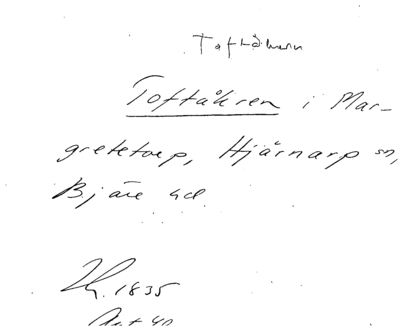 Toftåkern
Toftåkren i Mar-
gretetorp, Hjärnarp sn,
Bjäre hd.
1835
Akt 40